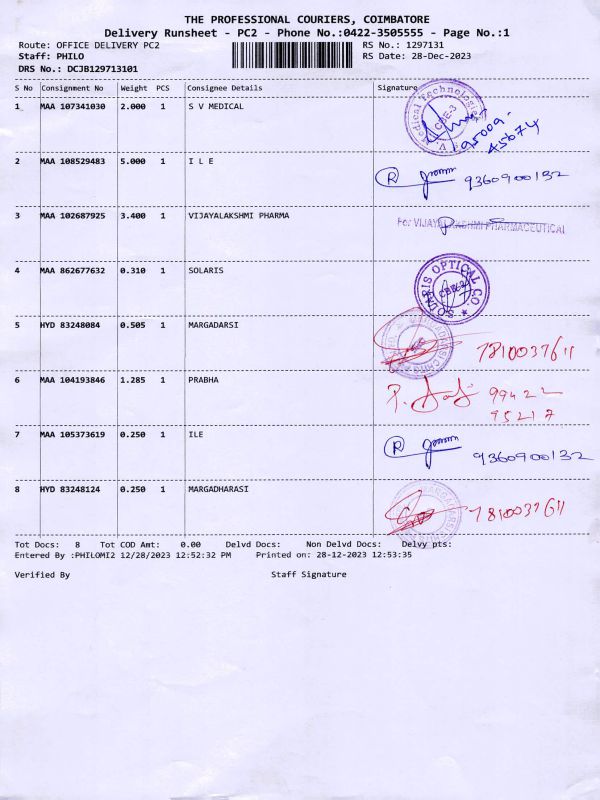 THE PROFESSIONAL COURIERS, COIMBATORE
Delivery Runsheet - PC2 - Phone No.:0422-3505555 - Page No.:1
Route: OFFICE DELIVERY PC2 RS No.: 1297131
Staff: PHILO RS Date: 28-Dec-2023
DRS No.: DCJB129713101
S No Consignment No Weight PCS Consignee Details Signature
1 MAA 107341030 2.000 1 S V MEDICAL
Medical Technologies
CBE-3
95009-
45674
2 MAA 108529483 5.000 1 I L E
R 9360900132
3 MAA 102687925 3.400 1 VIJAYALAKSHMI PHARMA
For VIJAYALAKSHMI PHARMACEUTICAL
4 MAA 862677632 0.310 1 SOLARIS
SOLARIS OPTICAL CO.
5 HYD 83248084 0.505 1 MARGADARSI
7810037611
6 MAA 104193846 1.285 1 PRABHA
P. 99422
95217
7 MAA 105373619 0.250 1 ILE
R 9360900132
8 HYD 83248124 0.250 1 MARGADHARASI
7810037611
Tot Docs: 8 Tot COD Amt: 0.00 Delvd Docs: Non Delvd Docs: Delvy pts:
Entered By :PHILOMI2 12/28/2023 12:52:32 PM Printed on: 28-12-2023 12:53:35
Verified By Staff Signature